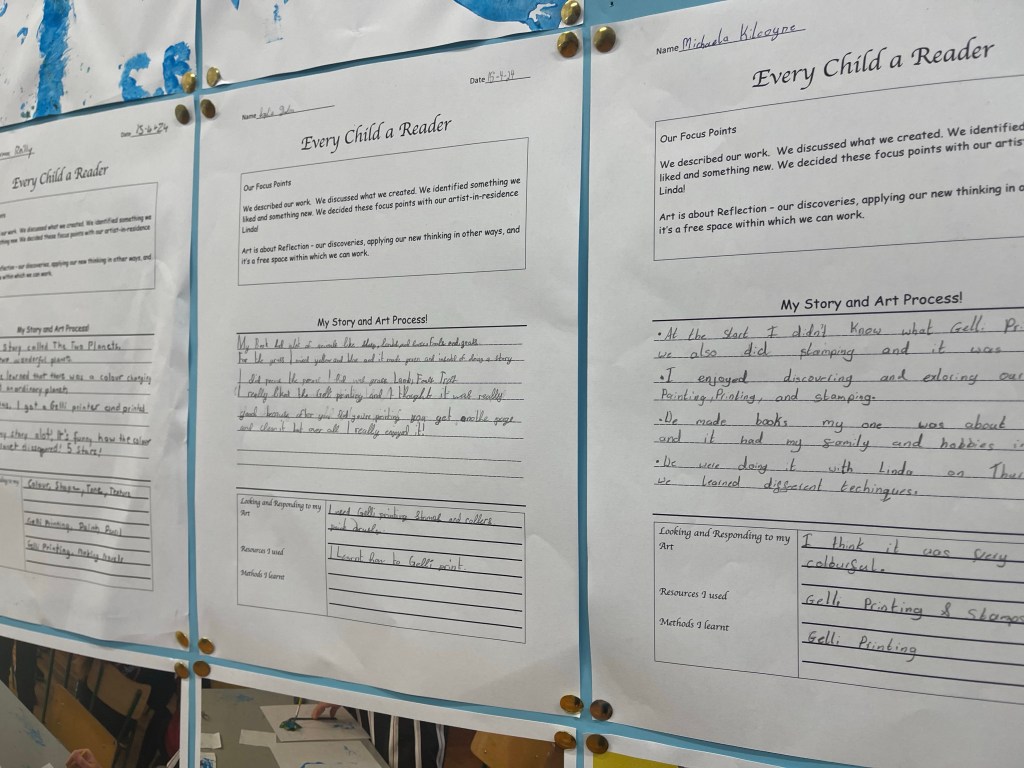 Date 15-4-24
Every Child a Reader
our work. We discussed what we created. We identified something we
new. We decided these focus points with our artist-in-residence
Reflection - our discoveries, applying our new thinking in other ways, and
within which we can work.
My Story and Art Process!
Story called The Two Planets.
wonderful planet
learned that there was a colour changing
planet
I got a Gelli printer and printed
story alot! It's funny how the colour
disappeared! 5 Stars!
Colour, Shape, Tone, Texture
Gelli Printing, Paint
Gelli Printing, Making
Name
Date 15-4-24
Every Child a Reader
Our Focus Points
We described our work. We discussed what we created. We identified something we
liked and something new. We decided these focus points with our artist-in-residence
Linda!
Art is about Reflection – our discoveries, applying our new thinking in other ways, and
it's a free space within which we can work.
My Story and Art Process!
My Book had alot of animals like sheep, and goats
For the print I used yellow and blue and it made green and instead of doing a story
I did
I really like the Gelli printing and I thought it was really
good because after you did your printing you get another page
and clear it but over all I really enjoyed it!
Looking and Responding to my
Art
Resources I used
Methods I learnt
I used Gelli printing Stamps and rollers
paint
I learnt how to Gelli print.
Name Michaela Kilcoyne
Every Child a Reader
Our Focus Points
We described our work. We discussed what we created. We identified
liked and something new. We decided these focus points with our artis
Linda!
Art is about Reflection – our discoveries, applying our new thinking in o
it's a free space within which we can work.
My Story and Art Process!
• At the start I didn't know what Gelli Pr
we also did stamping and it was
• I enjoyed discovering and exloring our
Painting, Printing, and stamping.
• We made books my one was about
and it had my family and hobbies in
• We were doing it with Linda on Thur
we learned different techinques.
Looking and Responding to my
Art
Resources I used
Methods I learnt
I think it was very
colourful.
Gelli Printing & Stamps
Gelli Printing